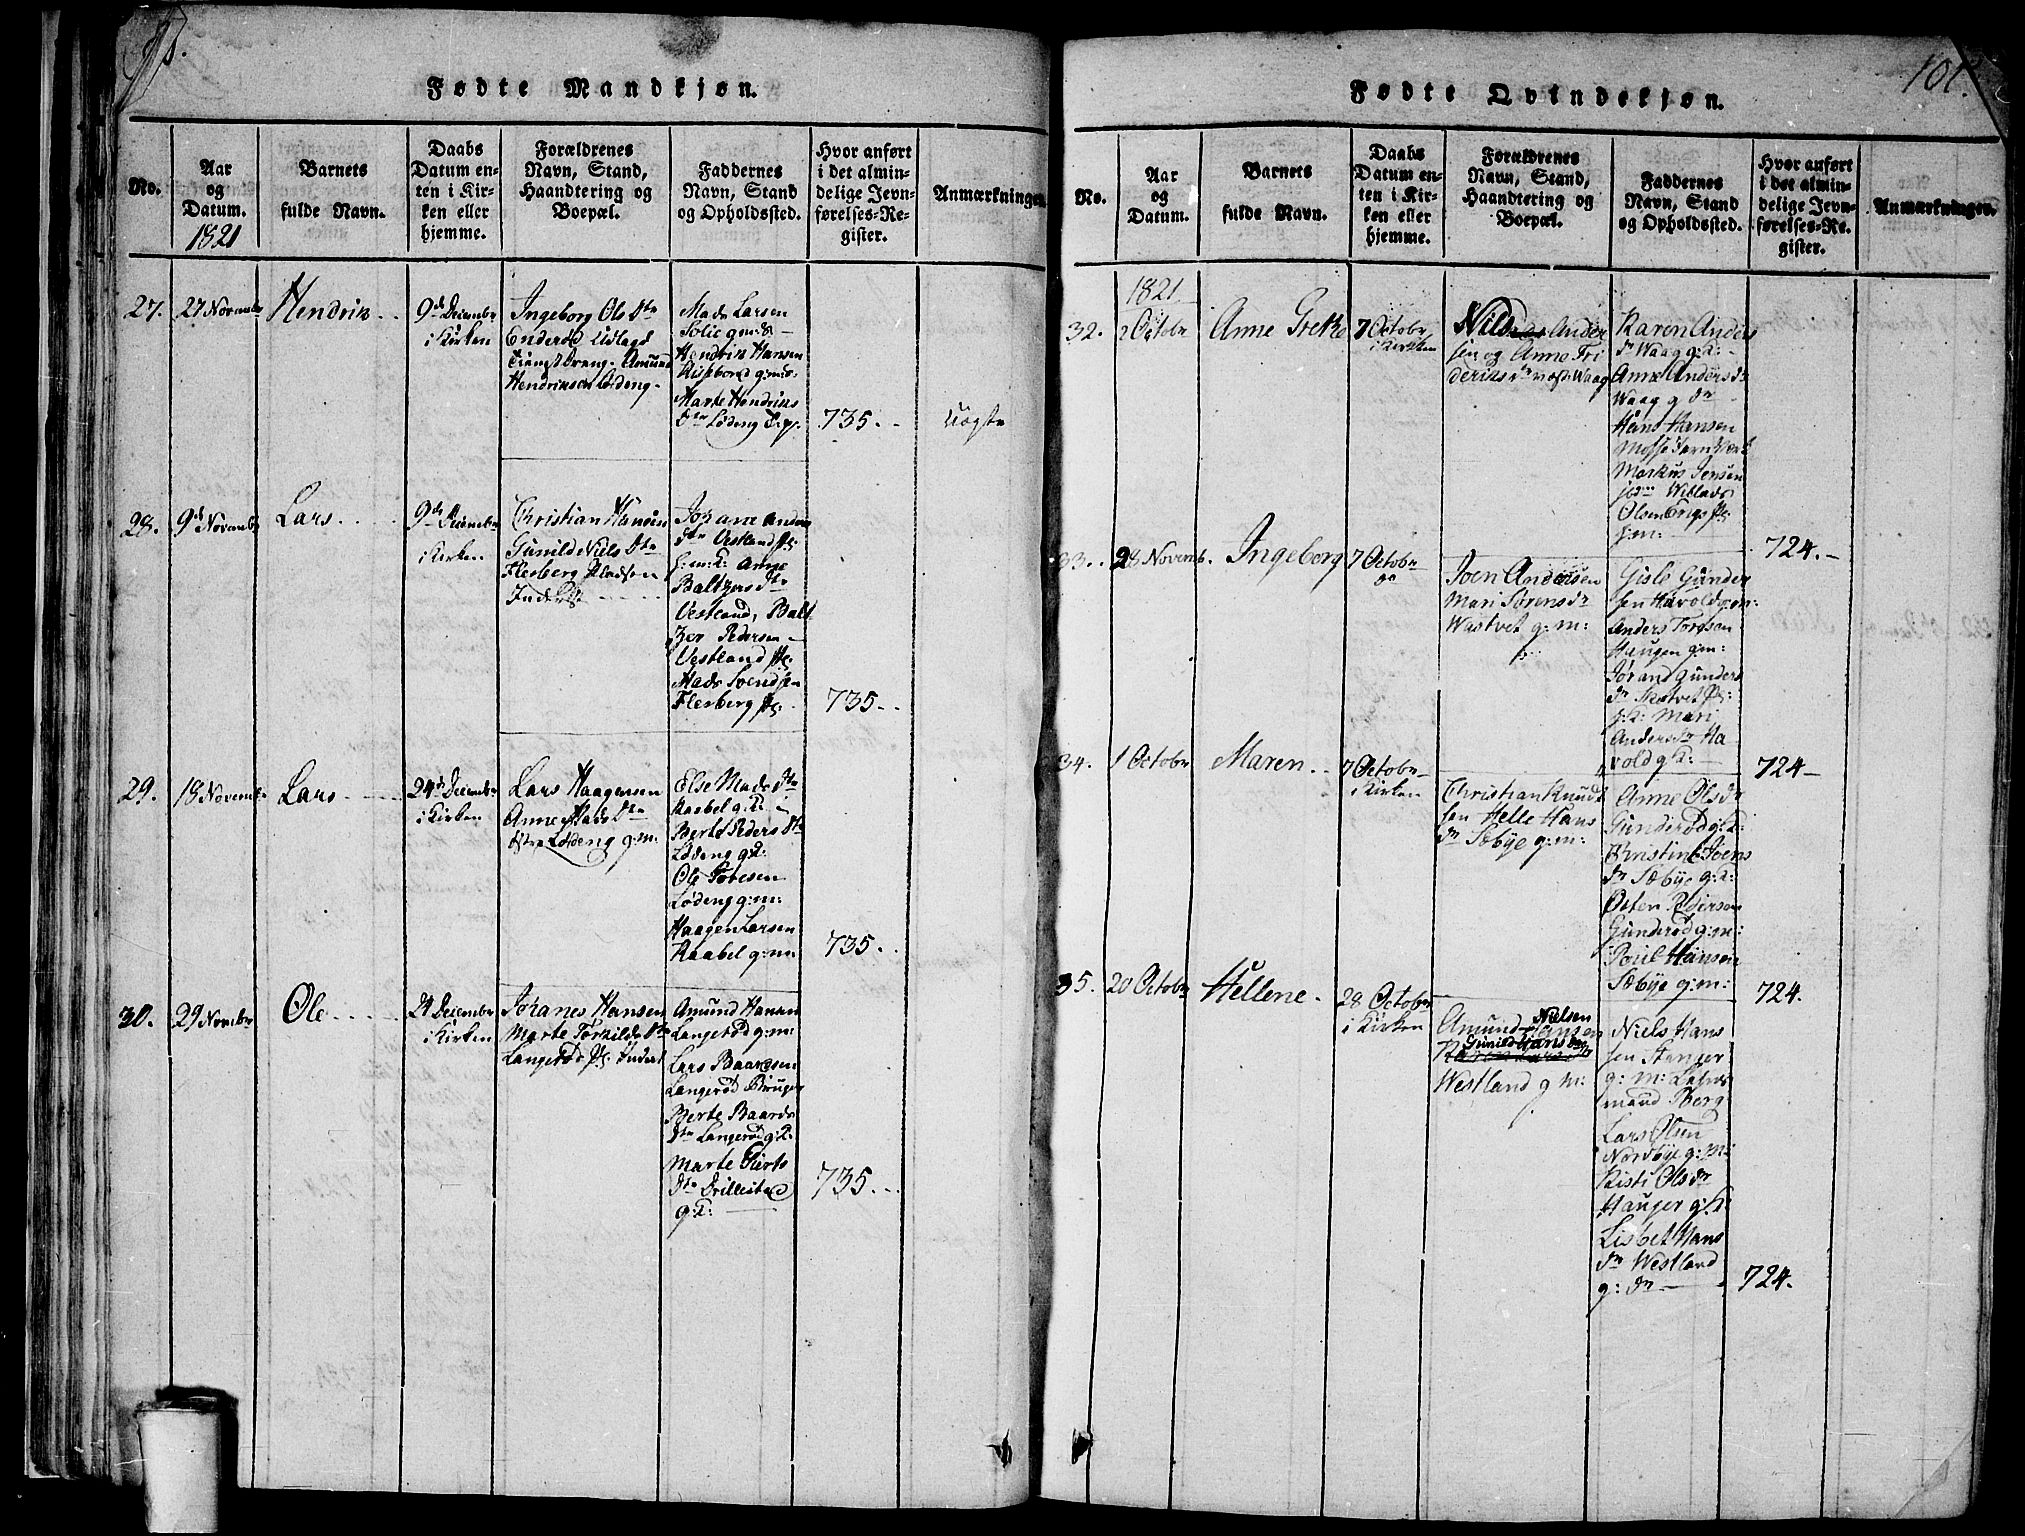 Fødte Mandkjøn.
No.
Aar
og
Datum.
1821
Barnets
fulde Navn.
Daabs
Datum en-
ten i Kir-
ken eller
hjemme.
Forældrenes
Navn, Stand,
Haandtering og
Boepæl.
Faddernes
Navn, Stand
og Opholdssted.
Hvor anført
i det almin-
delige Jevn-
førelses-Re-
gister.
Anmærkninger
27.
27 Novembr
Hendrik
9de Decembr
i Kirken
Ingeborg Ols Dtr
Enderød Udlagd
Amund
Hendriksen Lødeng
Mads Larsen
Solie
Hendrik Hansen
Marte Hendriks
Dtr Lødeng
735.
28.
9de Novembr
Lars
9de Decembr
i Kirken
Christian Hansen
Gunild Niels Dtr
Flesberg Pladsen
Johane Anders
Dtr Vestland
g:m:K: Anne
Baltzers Dtr
Vestland, Balt
zer Pedersen
Vestland
Mads Svendsen
Flesberg
735.
29.
18 Novembr
Lars
24de Decembr
i Kirken
Lars Haagensen
Anne Mads Dtr
Østre Lødeng g:m:
Else Mads Dtr
Raabel g:K:
Berte Peders Dtr
Lødeng g:K:
Ole Tovesen
Lødeng g:m:
Haagen Larsen
Raabel g:m:
735.
30.
29 Novembr
Ole
24 Decembr
i Kirken
Johanes Hansen
Marte Torkilds Dtr
Langerød
Amund Hansen
Langerød g:m:
Lars Baardsen
Langerød Bruger
Berte Baards
Dtr Langerød g:K:
Marte
Dtr Drillestad
g:K:
735.
101.
Fødte Qvindekjøn.
No.
Aar
og
Datum.
Barnets
fulde Navn.
Daabs
Datum en-
ten i Kir-
ken eller
hjemme.
Forældrenes
Navn, Stand,
Haandtering og
Boepæl.
Faddernes
Navn, Stand
og Opholdssted.
Hvor anført
i det almin-
delige Jevn-
førelses-Re-
gister.
Anmærkninger.
1821
32.
2 Octobr
Anne Grethe
7 Octobr
i Kirken
Ander
sen og Anne Fri
deriks Dr Waag
Karen Anders
Dr Waag g:K:
Anne Anders Dr
Waag g Dr
Hans Hansen
Mosse Jarnværk
Markus Jensen
Willads
Olsen
g:m:
724.
33.
28 Novemb.
Ingeborg
7 Octobr
Joen Andersen
Mari Sørens Dr
Wastvet g:m:
Gisle Gunder
sen Havold g:m:
Anders Torgsen
Haugen g:m:
Jørand Gunders
Dr
g:K: Mari
Anders Dr Ha
vold g:K:
724
34.
1 Octobr
Maren
7 Octobr
i Kirken
Christian Knudt
sen Helle Hans
Dr Sæbye g:m:
Anne Ols Dr
Gunderød g:K:
Christine Joens
Dr Sæbye g:K:
Osten Pedersen
Gunderød g:m:
Poul Hansen
Sæbye g:m:
724.
35.
20 Octobr
Hellene
28 Octobr
i Kirken
Nielsen
Amund Hansen
Gunild Hans Dtr
Westland g m:
Niels Hans
sen Stanger
g: m:
mand Berg
Lars Olsen
Nordbye g:m:
Kisti Ols Dr
Hauger g:K:
Lisbet Hans
Dr Westland
g: Dr
724.